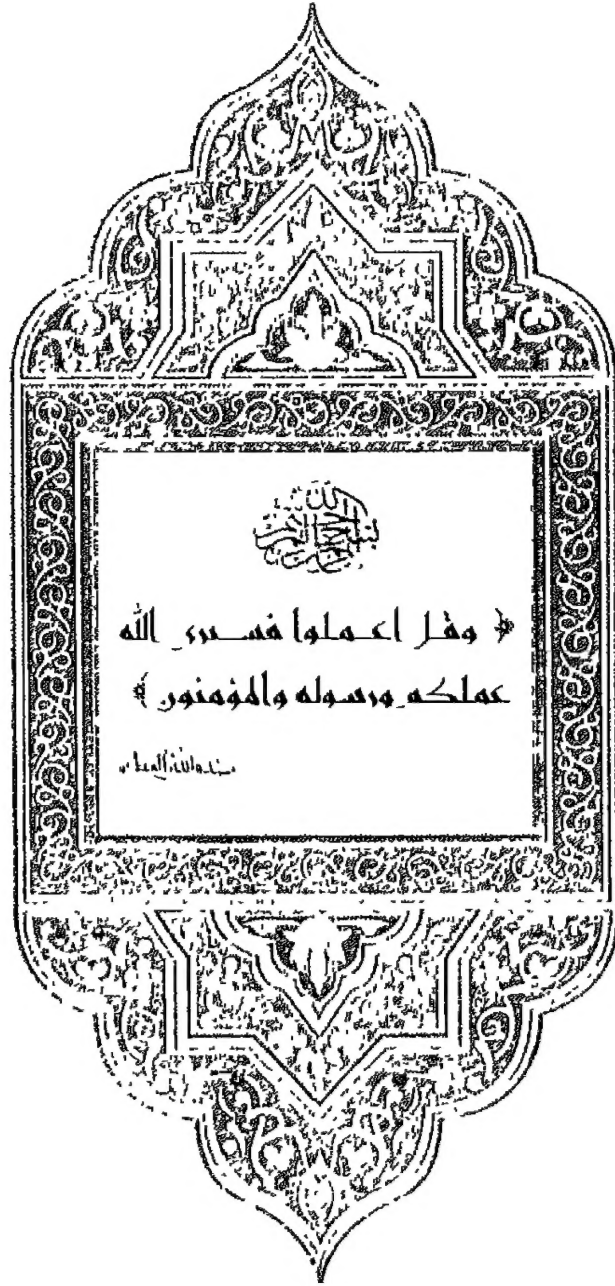 بسم الله الرحمن الرحيم
﴿ وقل اعملوا فسيرى الله
عملكم ورسوله والمؤمنون ﴾
صدق الله العظيم